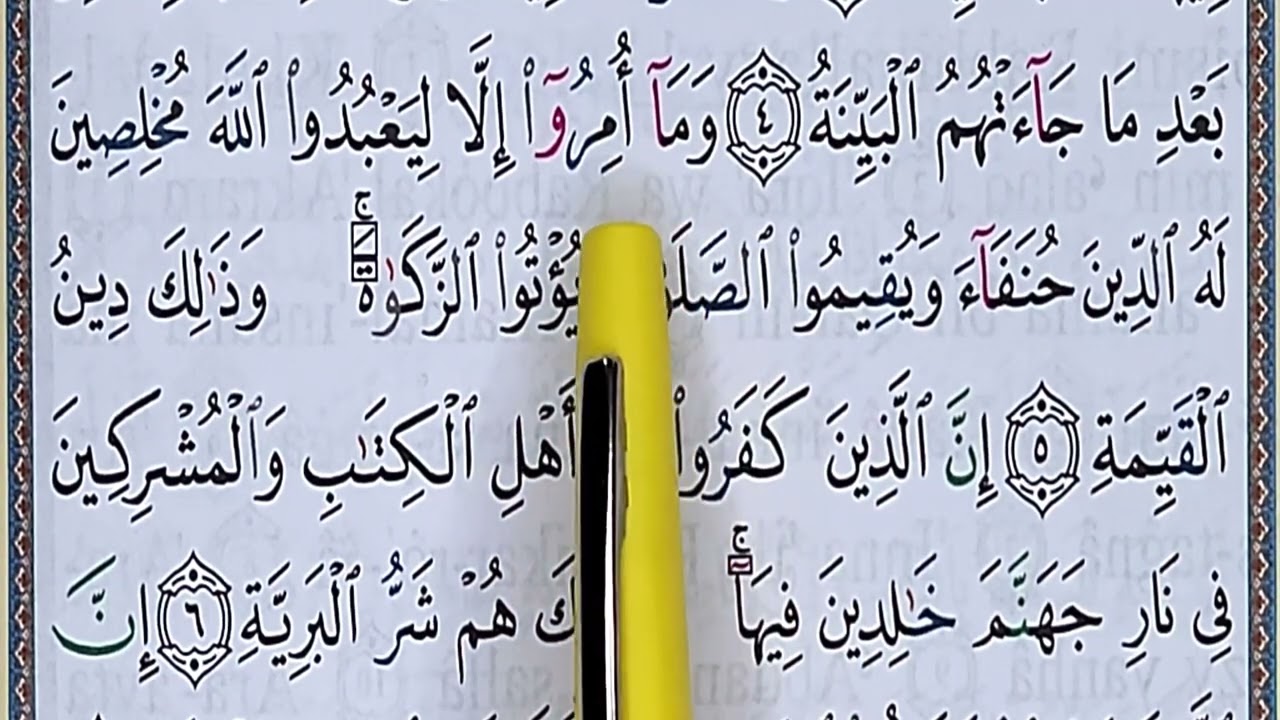 بَعْدِ مَا جَآءَتْهُمُ ٱلْبَيِّنَةُ ٤ وَمَآ أُمِرُوٓا۟ إِلَّا لِيَعْبُدُوا۟ ٱللَّهَ مُخْلِصِينَ
لَهُ ٱلدِّينَ حُنَفَآءَ وَيُقِيمُوا۟ يُؤْتُوا۟ ٱلزَّكَوٰةَ ۚ وَذَٰلِكَ دِينُ
ٱلْقَيِّمَةِ ٥ إِنَّ ٱلَّذِينَ كَفَرُوا۟ أَهْلِ ٱلْكِتَـٰبِ وَٱلْمُشْرِكِينَ
فِى نَارِ جَهَنَّمَ خَـٰلِدِينَ فِيهَآ ۚ هُمْ شَرُّ ٱلْبَرِيَّةِ ٦ إِنَّ